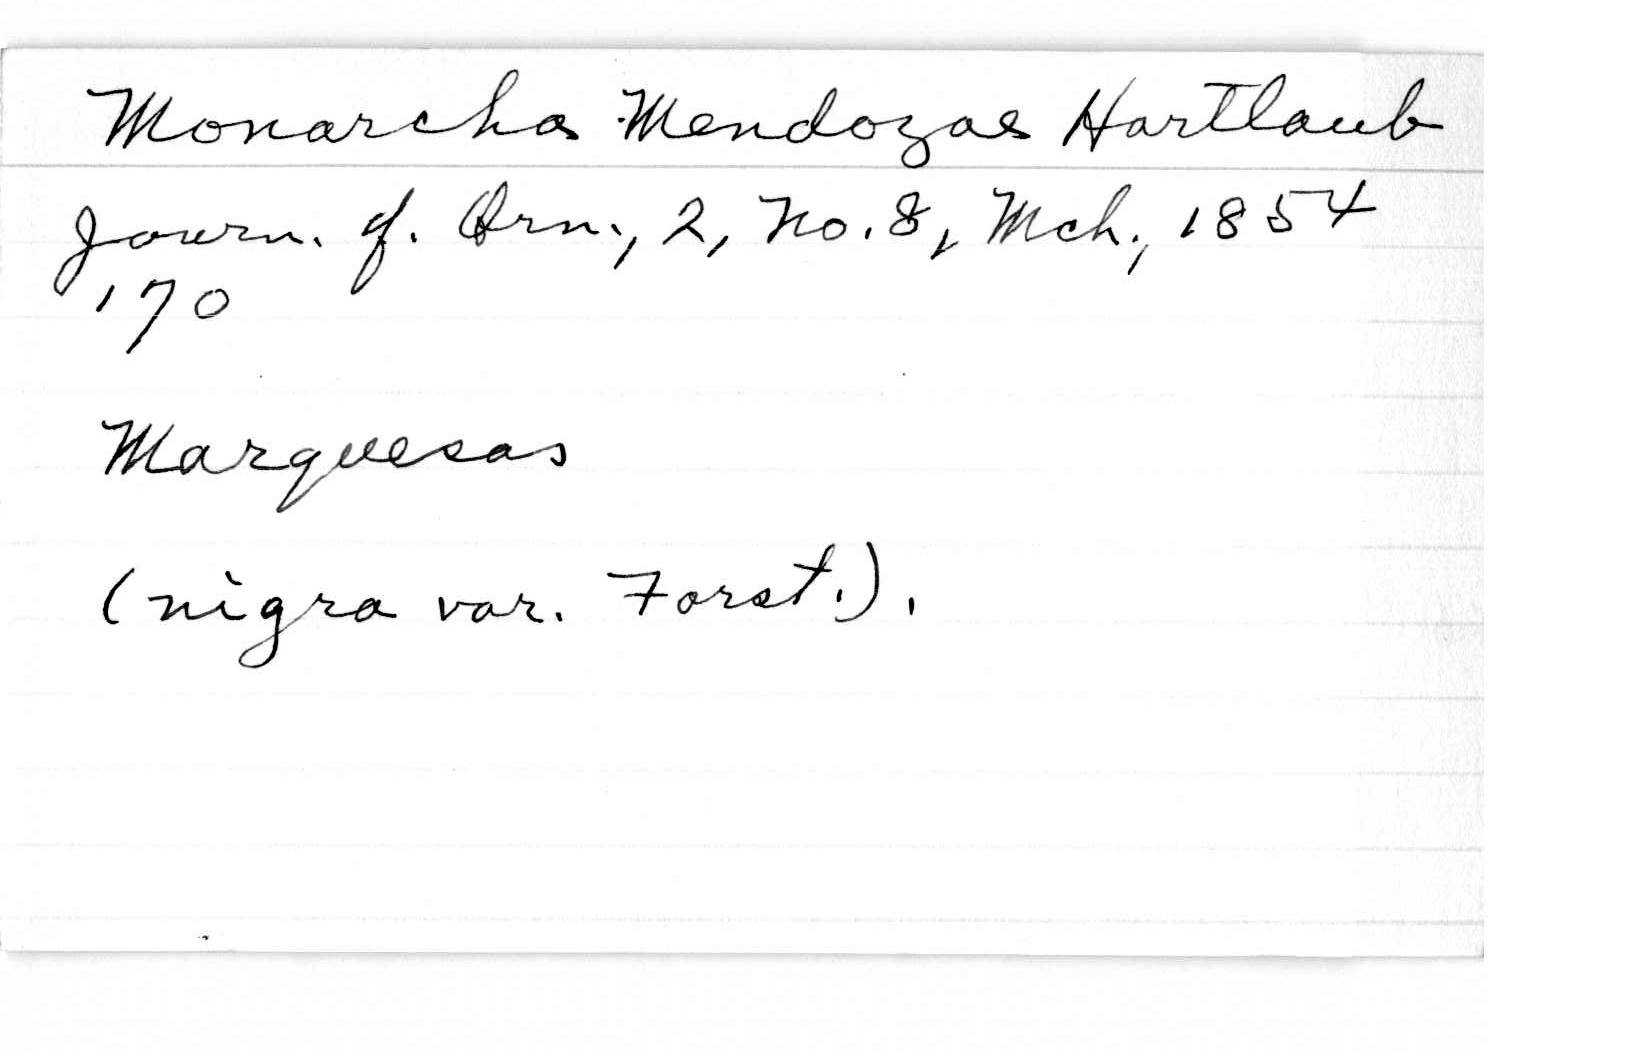 Monarcha Mendozae Hartlaub
Journ. f. Orn., 2, No. 8, Mch., 1854
170
Marquesas
(nigra var. Forst.).